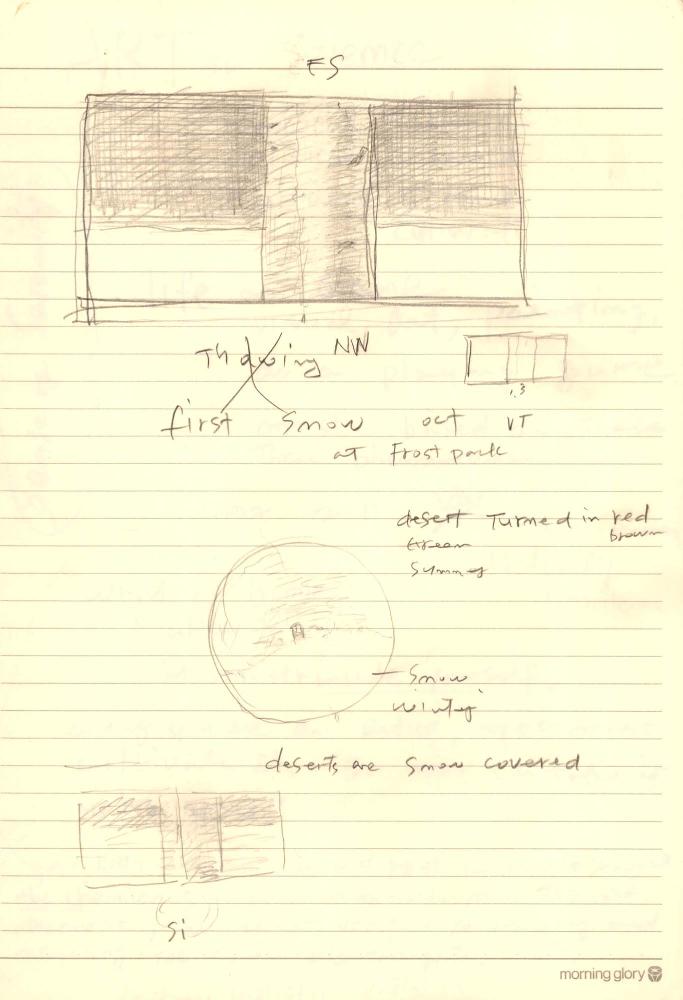 ES
Thawing NW
first snow oct VT
at Frost park
1.3
desert Turned in red
brown
green
summer
snow
winter
deserts are snow covered
Si
morning glory